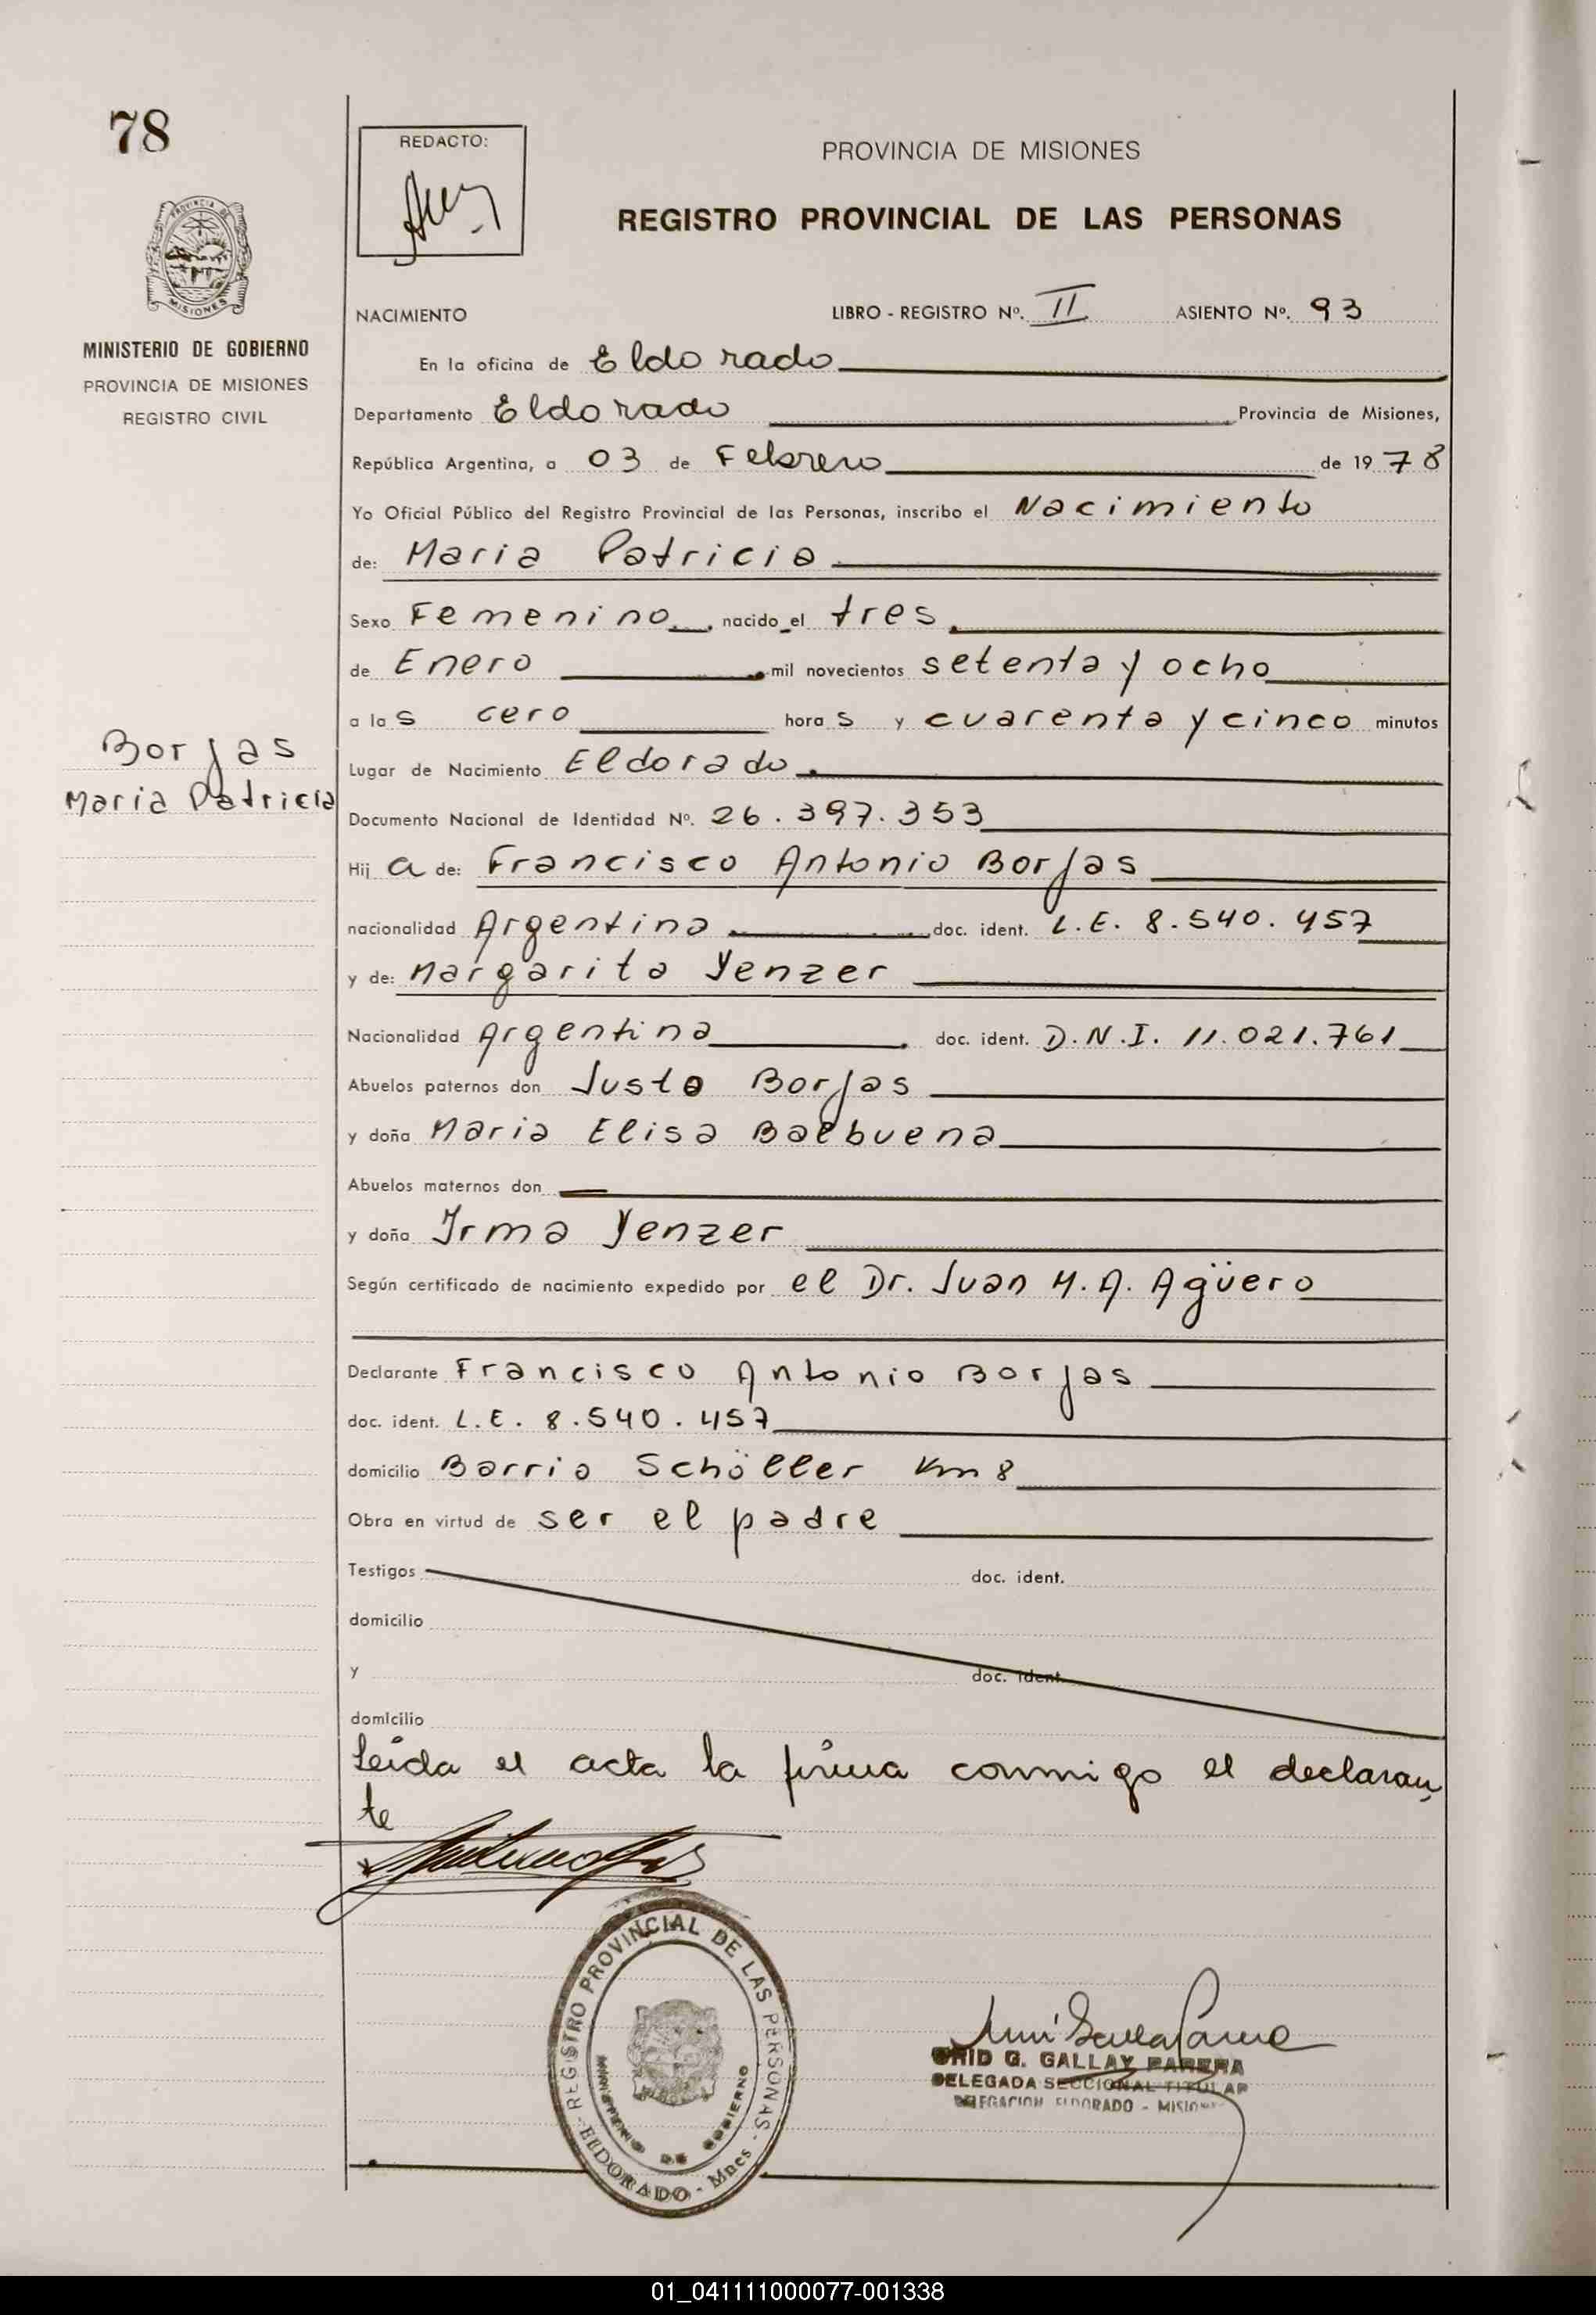 78
PROVINCIA DE MISIONES
MINISTERIO DE GOBIERNO
PROVINCIA DE MISIONES
REGISTRO CIVIL
Borjas
Maria Patricia
REDACTO:
PROVINCIA DE MISIONES
REGISTRO PROVINCIAL DE LAS PERSONAS
NACIMIENTO LIBRO - REGISTRO Nº. II ASIENTO Nº. 93
En la oficina de Eldorado
Departamento Eldorado Provincia de Misiones,
República Argentina, a 03 de Febrero de 1978
Yo Oficial Público del Registro Provincial de las Personas, inscribo el Nacimiento
de: Maria Patricia
Sexo Femenino nacido el tres
de Enero mil novecientos setenta y ocho
a las cero horas y cuarenta y cinco minutos
Lugar de Nacimiento Eldorado.
Documento Nacional de Identidad Nº. 26.397.353
Hija de: Francisco Antonio Borjas
nacionalidad Argentina doc. ident. L.E. 8.540.457
y de: Margarita Yenzer
Nacionalidad Argentina doc. ident. D.N.I. 11.021.761
Abuelos paternos don Justo Borjas
y doña Maria Elisa Balbuena
Abuelos maternos don
y doña Irma Yenzer
Según certificado de nacimiento expedido por el Dr. Juan M. A. Agüero
Declarante Francisco Antonio Borjas
doc. ident. L.E. 8.540.457
domicilio Barrio Schöller Km 8
Obra en virtud de ser el padre
Testigos doc. ident.
domicilio
y doc. ident.
domicilio
Leída el acta la firma conmigo el declaran
te
REGISTRO PROVINCIAL DE LAS PERSONAS
MINISTERIO DE GOBIERNO
ELDORADO - Mnes
G. GALLAY PARERA
DELEGADA SECCIONAL TITULAR
DELEGACION ELDORADO - MISIONES
01_041111000077-001338